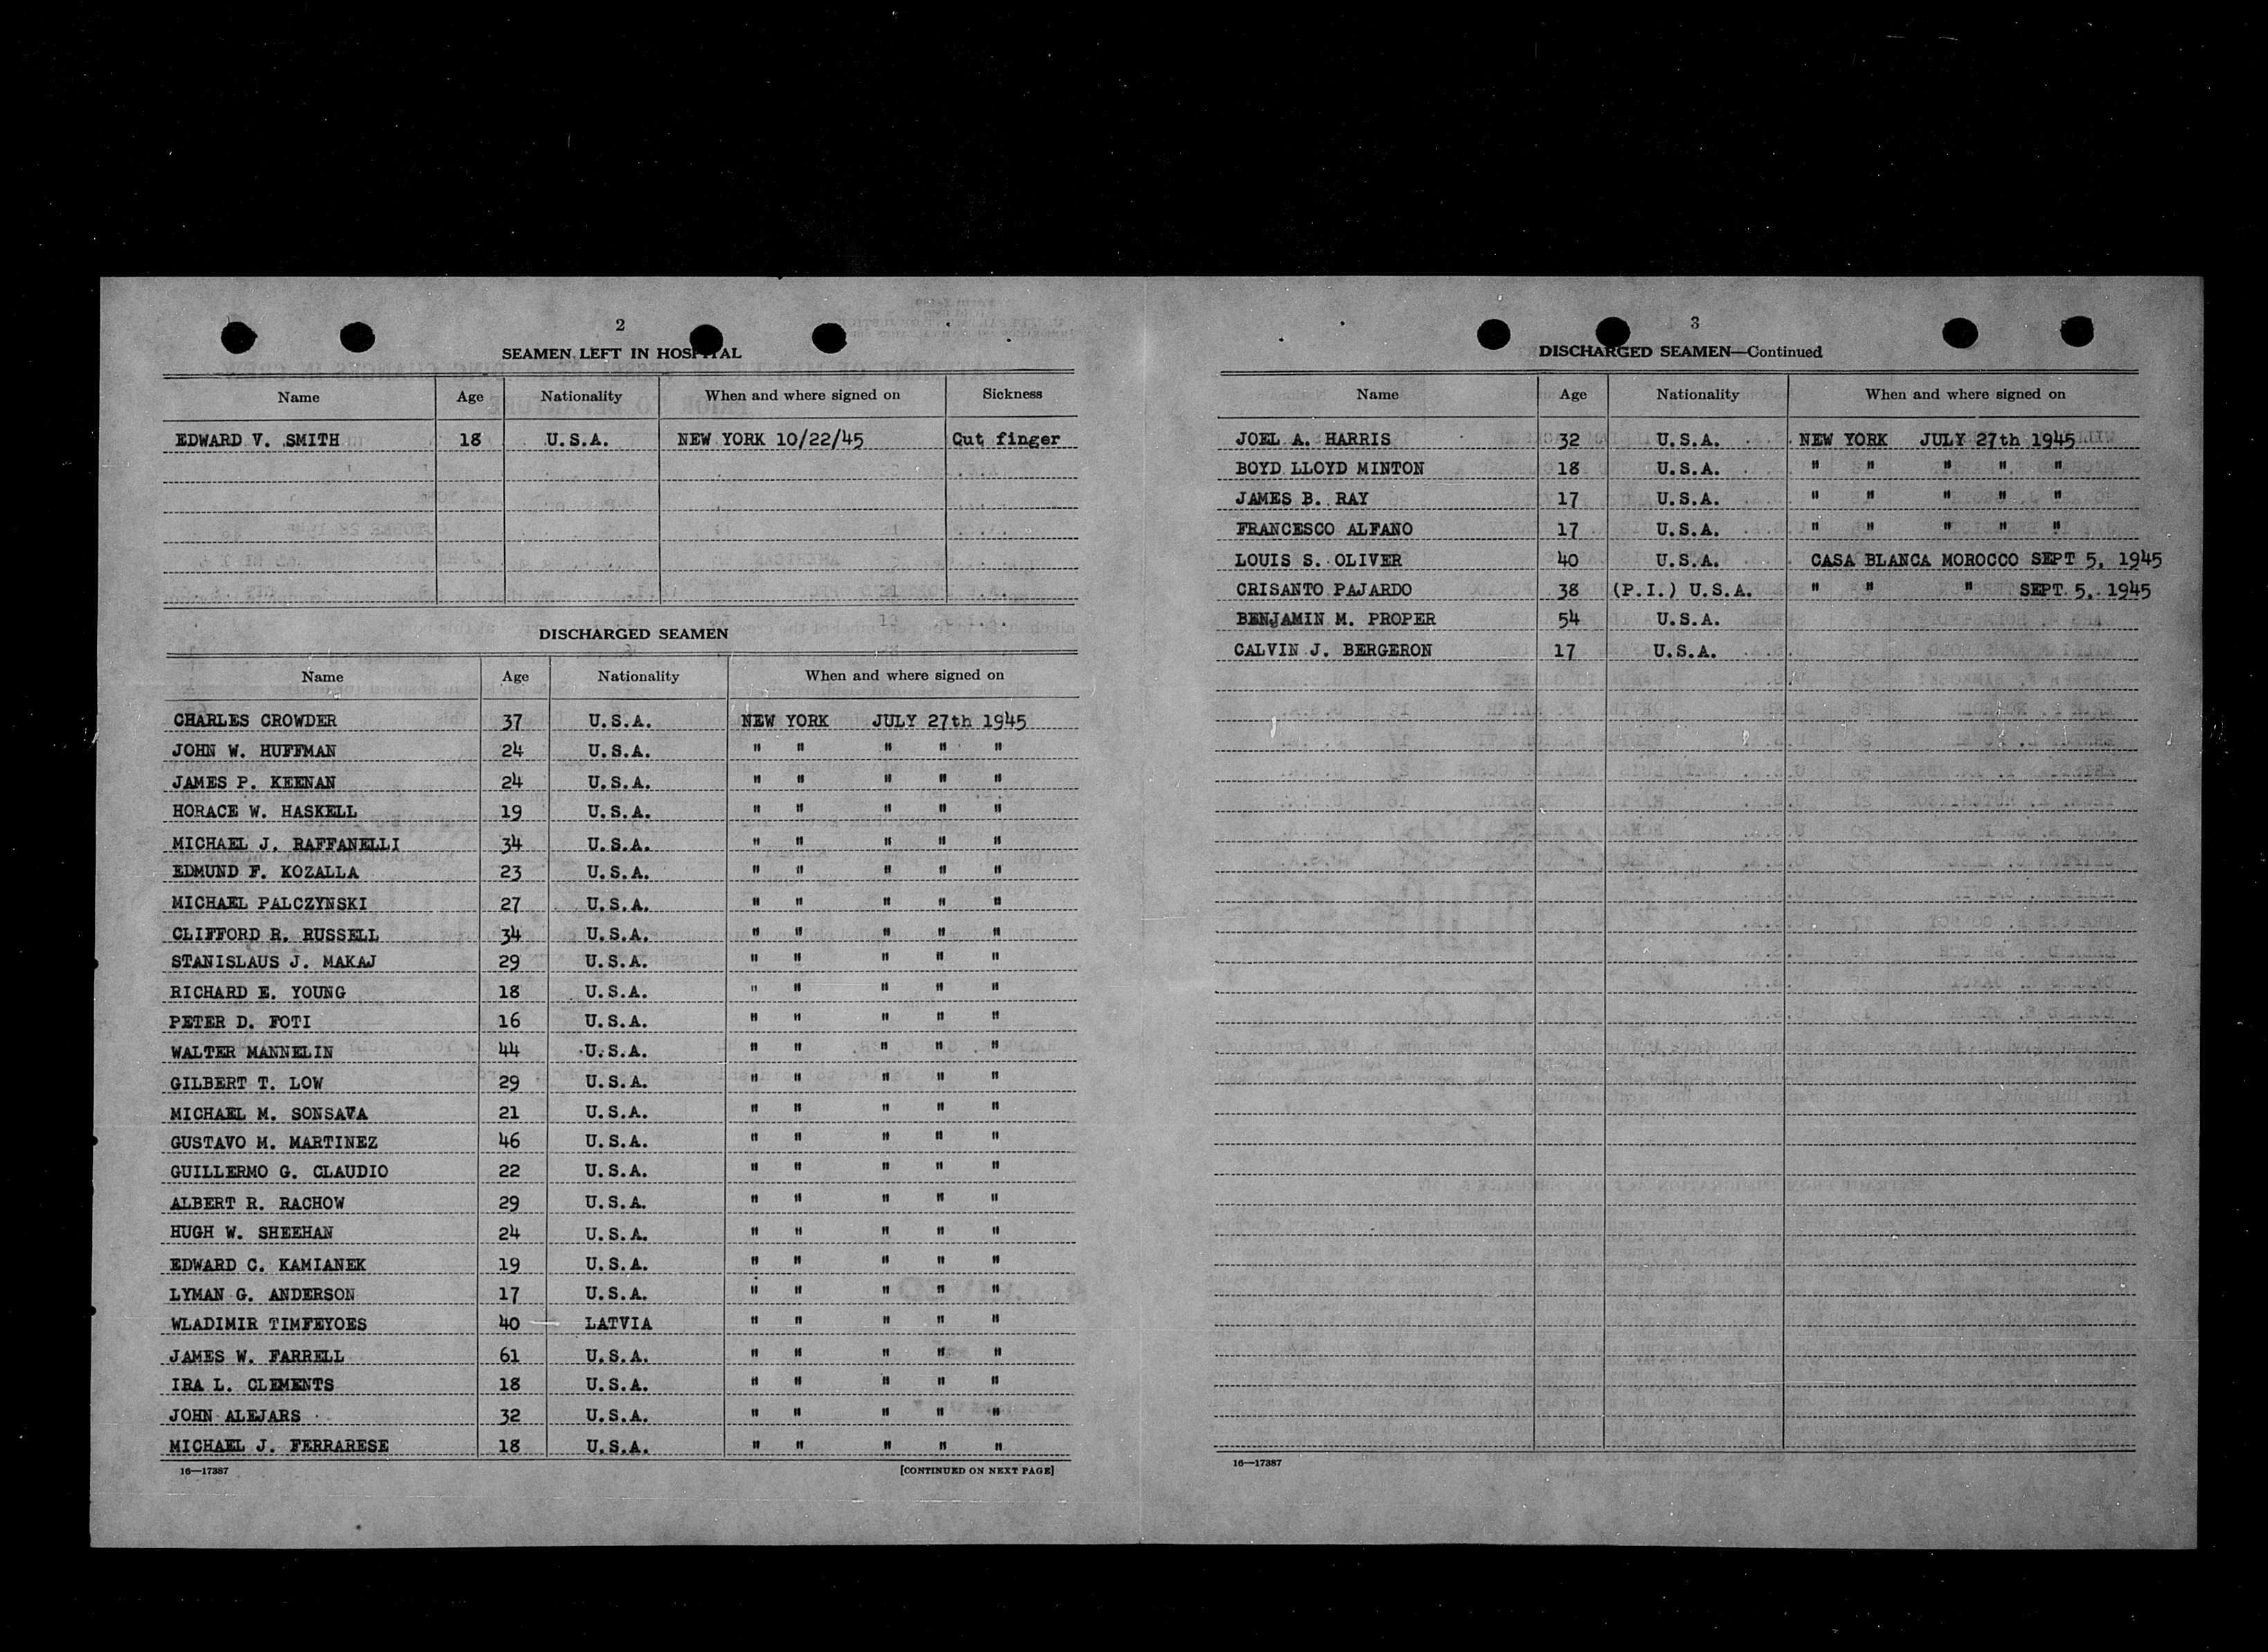 2
SEAMEN LEFT IN HOSPITAL
Name Age Nationality When and where signed on Sickness
EDWARD V. SMITH 18 U.S.A. NEW YORK 10/22/45 Cut finger
DISCHARGED SEAMEN
Name Age Nationality When and where signed on
CHARLES CROWDER 37 U.S.A. NEW YORK JULY 27th 1945
JOHN W. HUFFMAN 24 U.S.A. " " " " "
JAMES P. KEENAN 24 U.S.A. " " " " "
HORACE W. HASKELL 19 U.S.A. " " " " "
MICHAEL J. RAFFANELLI 34 U.S.A. " " " " "
EDMUND F. KOZALLA 23 U.S.A. " " " " "
MICHAEL PALCZYNSKI 27 U.S.A. " " " " "
CLIFFORD R. RUSSELL 34 U.S.A. " " " " "
STANISLAUS J. MAKAJ 29 U.S.A. " " " " "
RICHARD E. YOUNG 18 U.S.A. " " " " "
PETER D. FOTI 16 U.S.A. " " " " "
WALTER MANNELIN 44 U.S.A. " " " " "
GILBERT T. LOW 29 U.S.A. " " " " "
MICHAEL M. SONSAVA 21 U.S.A. " " " " "
GUSTAVO M. MARTINEZ 46 U.S.A. " " " " "
GUILLERMO G. CLAUDIO 22 U.S.A. " " " " "
ALBERT R. RACHOW 29 U.S.A. " " " " "
HUGH W. SHEEHAN 24 U.S.A. " " " " "
EDWARD C. KAMIANEK 19 U.S.A. " " " " "
LYMAN G. ANDERSON 17 U.S.A. " " " " "
WLADIMIR TIMFEYOES 40 LATVIA " " " " "
JAMES W. FARRELL 61 U.S.A. " " " " "
IRA L. CLEMENTS 18 U.S.A. " " " " "
JOHN ALEJARS 32 U.S.A. " " " " "
MICHAEL J. FERRARESE 18 U.S.A. " " " " "
16—17387 [CONTINUED ON NEXT PAGE]
3
DISCHARGED SEAMEN—Continued
Name Age Nationality When and where signed on
JOEL A. HARRIS 32 U.S.A. NEW YORK JULY 27th 1945
BOYD LLOYD MINTON 18 U.S.A. " " " " "
JAMES B. RAY 17 U.S.A. " " " " "
FRANCESCO ALFANO 17 U.S.A. " " " " "
LOUIS S. OLIVER 40 U.S.A. CASA BLANCA MOROCCO SEPT 5, 1945
CRISANTO PAJARDO 38 (P.I.) U.S.A. " " " SEPT. 5, 1945
BENJAMIN M. PROPER 54 U.S.A.
CALVIN J. BERGERON 17 U.S.A.
16—17387